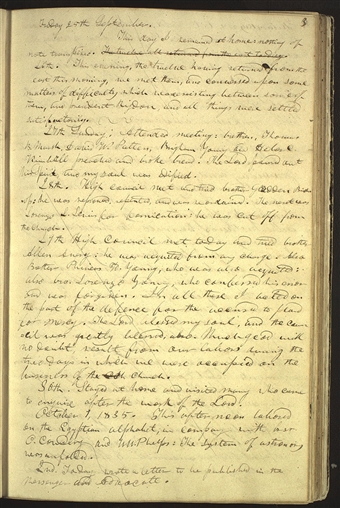 Friday 25th September.
This day I remained at home: nothing of
note transpired. returned from the east to day.
26th. This evening, the twelve having returned from the
east this morning, we met them, and conversed upon some
matters of difficulty which were existing between some of
them, and president Rigdon, and all things were settled
satisfactorily.
27th Sunday. Attended meeting: brethren, Thomas
B. Marsh, David W. Patten, Brigham Young & Heber C.
Kimball preached and broke bread. The Lord poured out
his spirit, and my soul was edified.
28th. High council met and tried brother Gladden
he was reproved, repented, and was The next was
Lorenzo L. Lewis for fornication: he was cut off from
the church.
29th High Council met to day and tried brother
Allen Avery: he was acquitted from any charge. Also
Brother Phineas H. Young, who was also acquitted:
also bro. Lorenzo Young, who confessed his error
and was forgiven. In all these I acted on
the part of the defence for the accused to plead
for mercy. The Lord blessed my soul, and the coun
cil was greatly blessed, also. Much good will
no doubt, result from our labors during the
two days in which we were occupied on the
business of the Church.
30th. Stayed at home and visited many who came
to enquire after the work of the Lord.
October 1, 1835. This after noon labored
on the Egyptian alphabet, in company with
O. Cowdery and W. W. Phelps: The system of astronomy
was unfolded.
2nd. To day wrote a letter to be published in the
Messenger and Advocate.